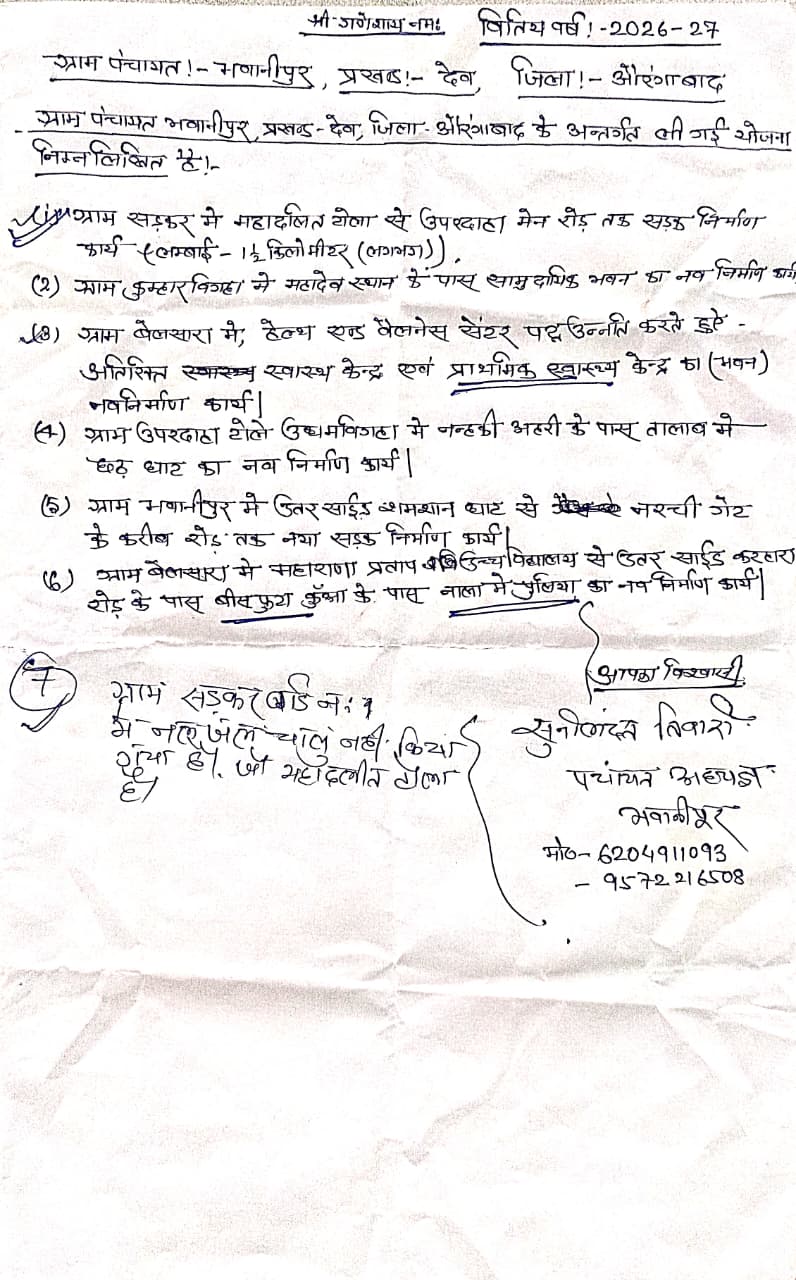 श्री गणेशाय नमः
वितिय वर्ष!-2026-27
ग्राम पंचायत!- भवानीपुर, प्रखण्ड!- देव, जिला!- औरंगाबाद
ग्राम पंचायत भवानीपुर, प्रखण्ड-देव, जिला-औरंगाबाद के अन्तर्गत ली गई योजना
निम्नलिखित है!-
(1) ग्राम सड़कर मे महादलित टोला से उपरदाहा मेन रोड़ तक सड़क निर्माण
कार्य (लम्बाई - 1½ किलोमीटर (लगभग)).
(2) ग्राम कुम्हार विगहा मे महादेव स्थान के पास सामुदायिक भवन का नव निर्माण कार्य
(3) ग्राम बेलसारा मे, हेल्थ एण्ड वैलनेस सेंटर उन्नति करते हुऐ -
अतिरिक्त स्वास्थ केन्द्र एवं प्राथमिक स्वास्थ्य केन्द्र का (भवन)
नवनिर्माण कार्य|
(4) ग्राम उपरदाहा टोले उधमविगहा मे नन्हकी अहरी के पास तालाब मे
छठ घाट का नव निर्माण कार्य|
(5) ग्राम भवानीपुर मे उतर साईड शमशान घाट से नरची गेट
के करीब रोड़ तक नया सड़क निर्माण कार्य|
(6) ग्राम बेलसारा मे महाराणा प्रताप उच्च विद्यालय से उतर साईड करहारा
रोड़ के पास बीसफुटा कुँआ के पास नाला मे पुलिया का नव निर्माण कार्य|
आपका विश्वासी
7 ग्राम सड़कर वार्ड नः 1
मे नल जल चालु नही किया
गया है। जो महादलीत टोला
है।
सुनील दत तिवारी
पंचायत अध्यक्ष
भवानीपुर
मो०- 6204911093
- 9572216508